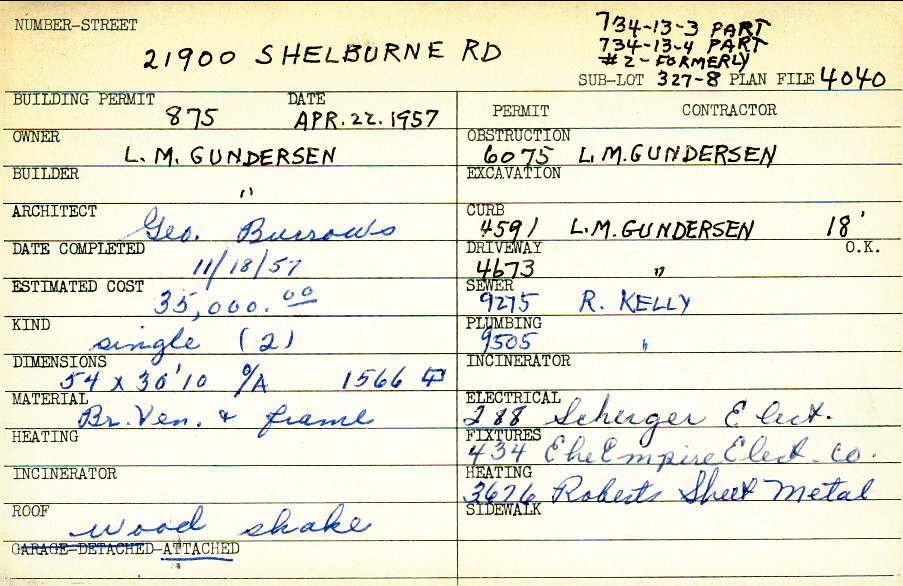 NUMBER-STREET
21900 SHELBURNE RD
734-13-3 PART
734-13-4 PART
#2-FORMERLY
SUB-LOT 327-8 PLAN FILE 4040
BUILDING PERMIT DATE
875 APR. 22. 1957
OWNER
L. M. GUNDERSEN
BUILDER
"
ARCHITECT
Geo. Burrows
DATE COMPLETED
11/18/57
ESTIMATED COST
35,000.00
KIND
single (2)
DIMENSIONS
54 x 30'10 O/A 1566
MATERIAL
Br. Ven. & frame
HEATING
INCINERATOR
ROOF
wood shake
GARAGE-DETACHED-ATTACHED
PERMIT CONTRACTOR
OBSTRUCTION
6075 L.M.GUNDERSEN
EXCAVATION
CURB
4591 L.M.GUNDERSEN 18'
DRIVEWAY O.K.
4673 "
SEWER
9275 R. KELLY
PLUMBING
9505 "
INCINERATOR
ELECTRICAL
288 Elect.
FIXTURES
434 The Empire Elect. Co.
HEATING
3676 Roberts Sheet Metal
SIDEWALK